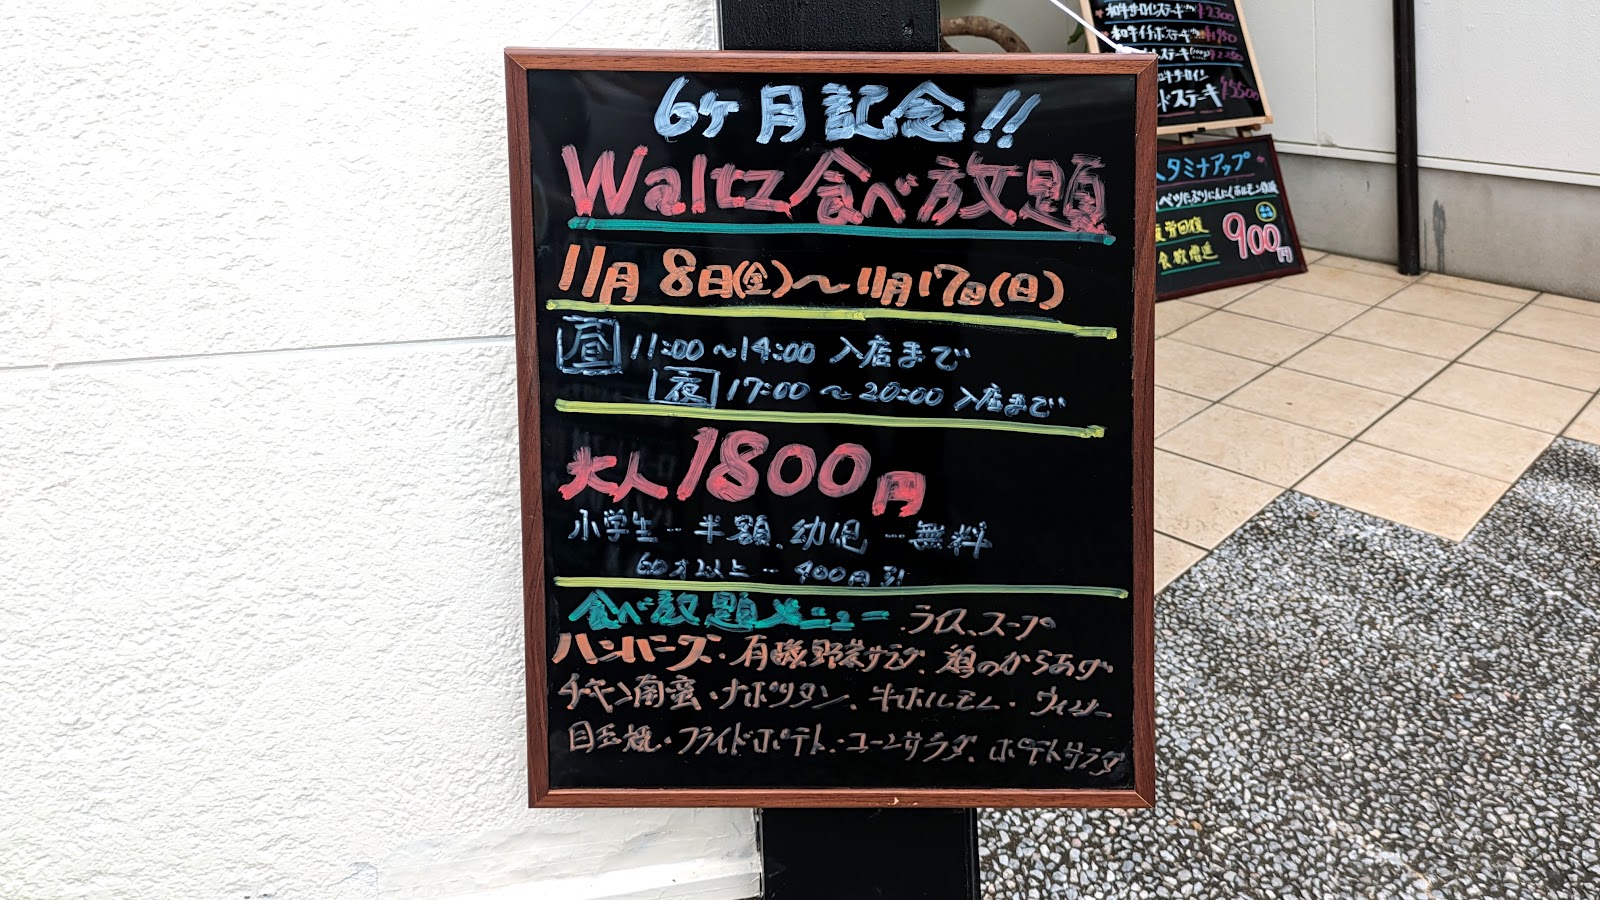 6ヶ月記念!!
Waltz食べ放題
11月8日(金)～11月17日(日)
昼 11:00～14:00 入店まで
夜 17:00～20:00 入店まで
大人1800円
小学生…半額、幼児…無料
60才以上…400円引
食べ放題メニュー ライス、スープ
ハンバーグ・有機野菜サラダ、鶏のからあげ
チキン南蛮・ナポリタン、牛ホルモン・ウィンナー
目玉焼・フライドポテト・コーンサラダ、ポテトサラダ
和牛サーロインステーキ ¥2300
和牛イチボステーキ ¥1950
ステーキ
サーロイン
ドステーキ ¥5500
スタミナアップ
疲労回復
食欲増進
900円